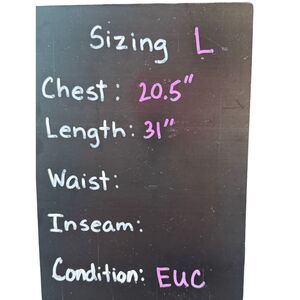 Sizing L
Chest: 20.5"
Length: 31"
Waist:
Inseam:
Condition: EUC